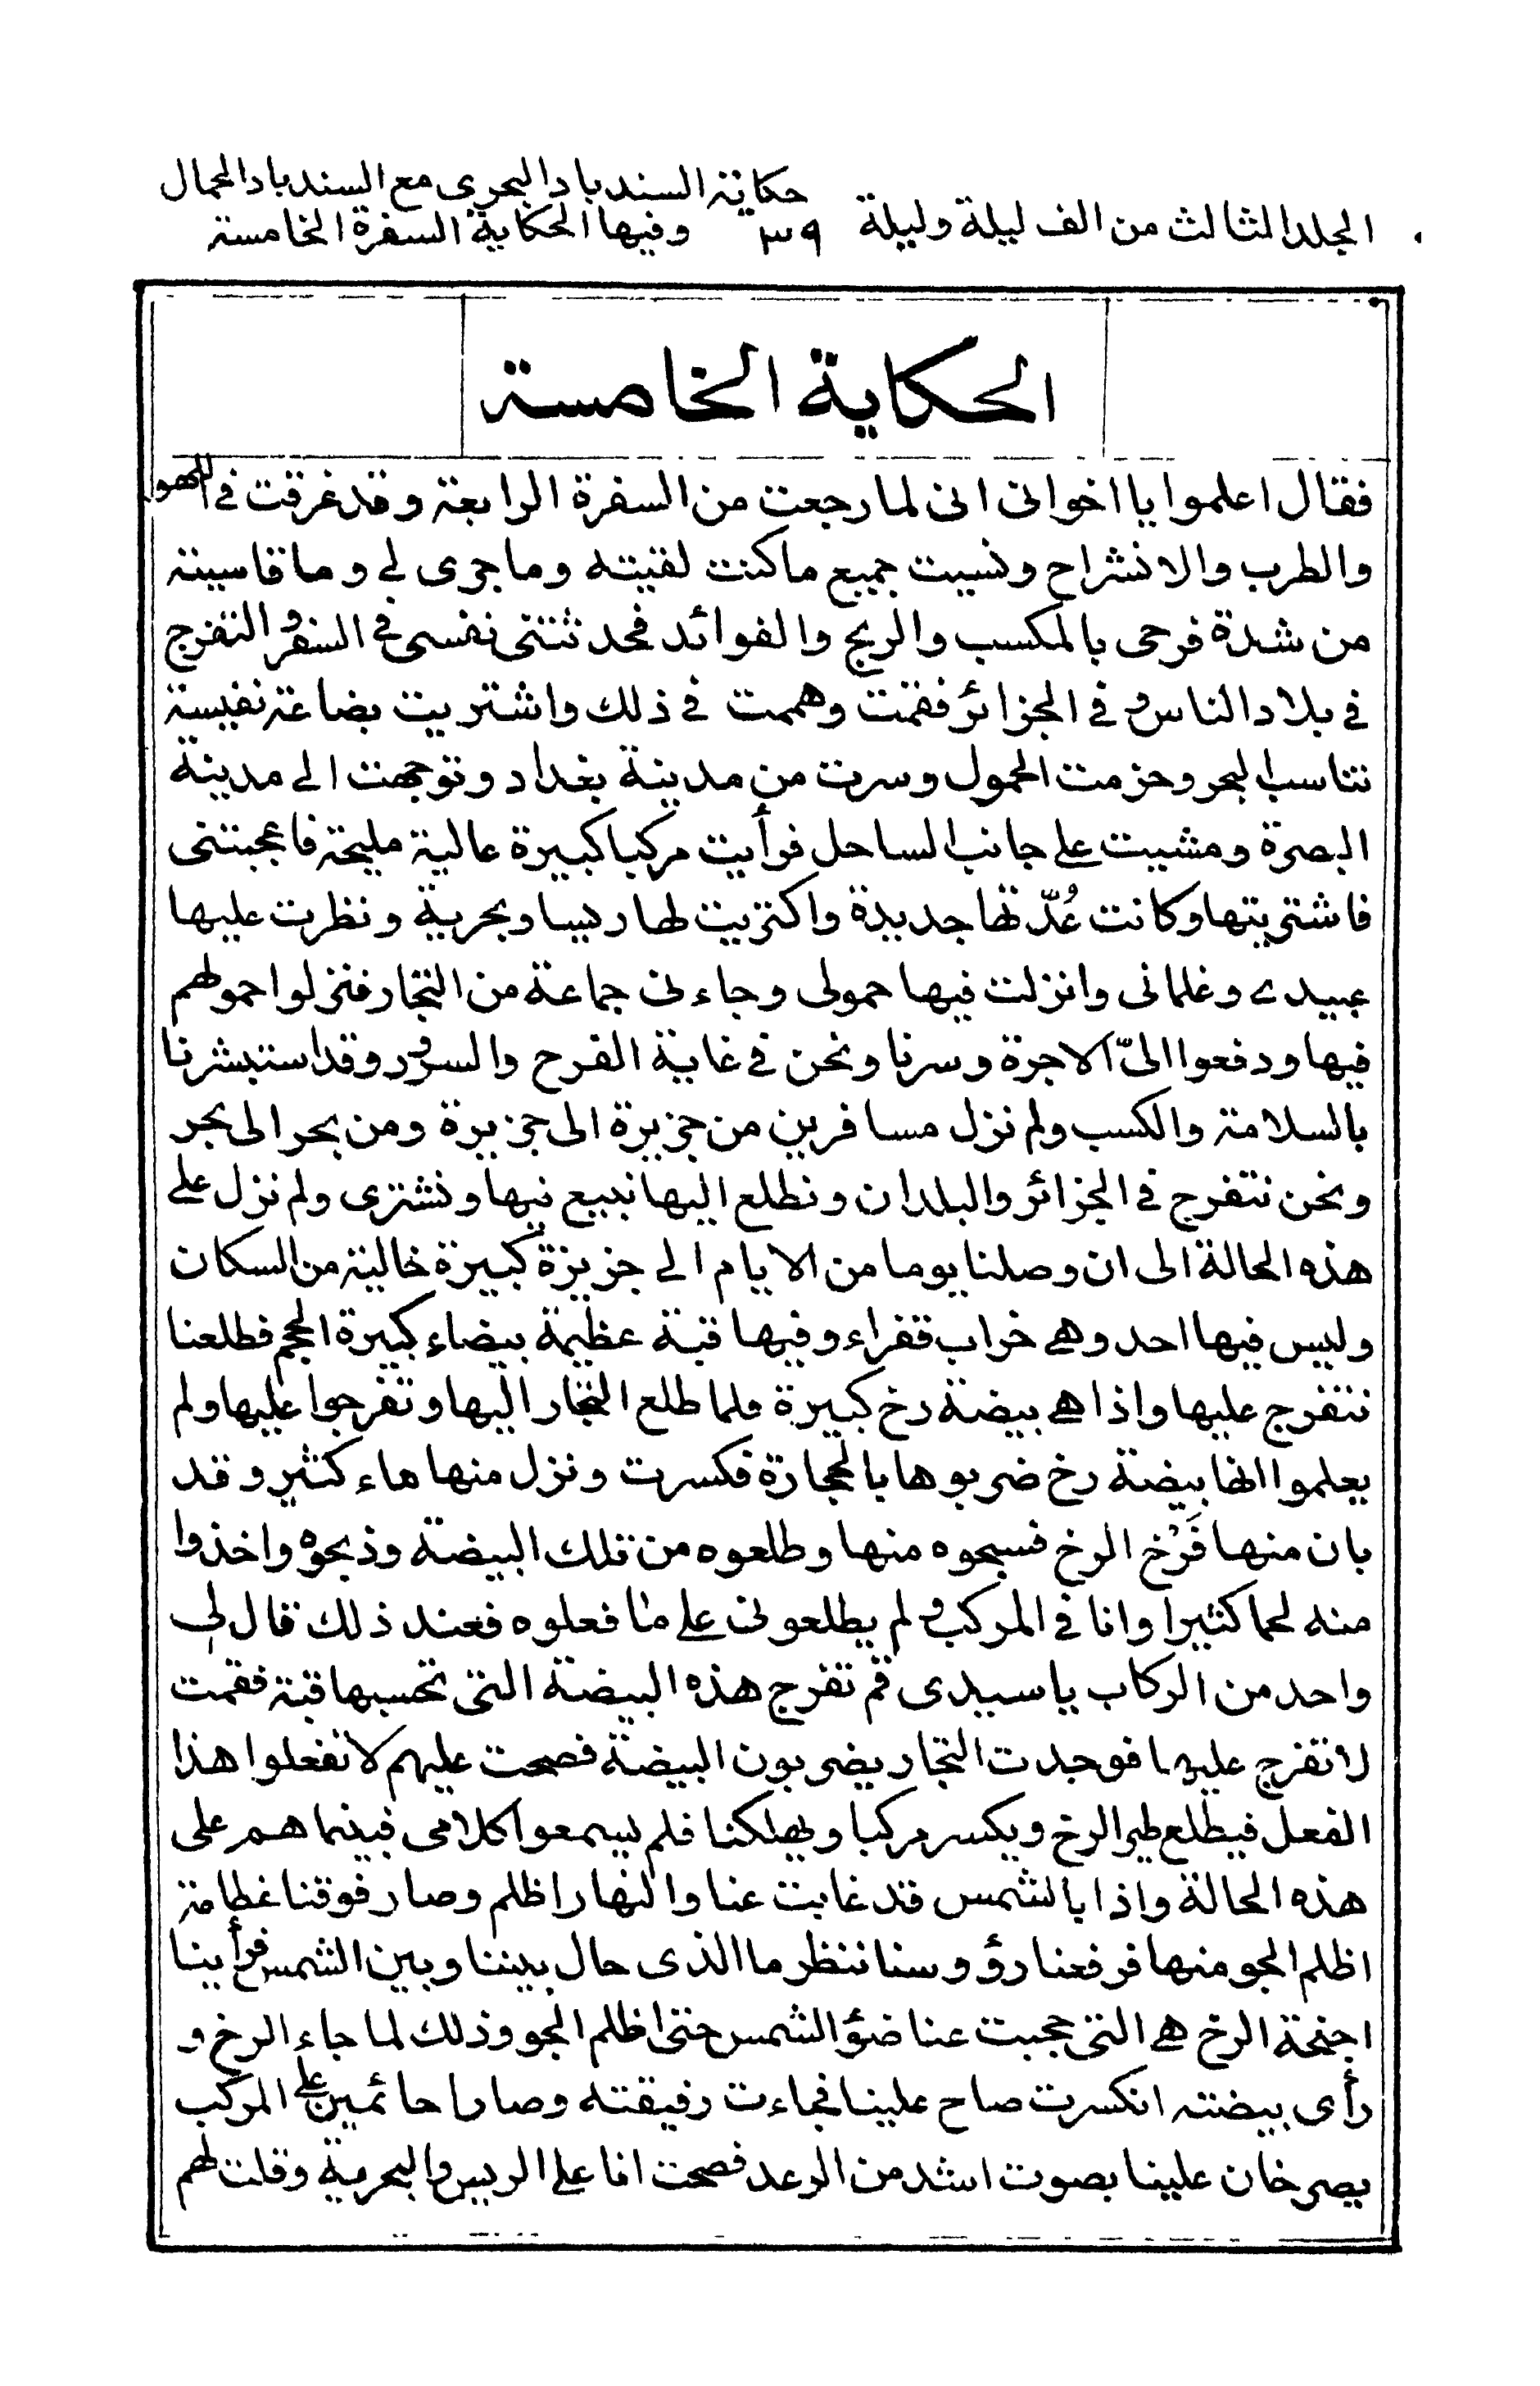 حكاية السندباد البحرى مع السندباد الحمال
المجلد الثالث من الف ليلة وليلة ٣٩ وفيها الحكاية السفرة الخامسة
الحكاية الخامسة
فقال اعلموا يا اخوانى انى لما رجعت من السفرة الرابعة وقد غرقت فى اللهو
والطرب والانشراح ونسيت جميع ما كنت لقيته وما جرى لى وما قاسيته
من شدة فرحى بالمكسب والربح والفوائد فحدثتنى نفسى فى السفر والتفرج
فى بلاد الناس و فى الجزائر فقمت وهممت فى ذلك واشتريت بضاعة نفيسة
تناسب البحر وحزمت الحمول وسرت من مدينة بغداد وتوجهت الى مدينة
البصرة ومشيت على جانب الساحل فرأيت مركبا كبيرة عالية مليحة فاعجبتنى
فاشتريتها وكانت عُدّتها جديدة واكتريت لها ريسا وبحرية ونظرت عليها
عبيدى وغلمانى وانزلت فيها حمولى وجاءنى جماعة من التجار فنزلوا حمولهم
فيها ودفعوا الىّ الاجرة وسرنا ونحن فى غاية الفرح والسرور وقد استبشرنا
بالسلامة والكسب ولم نزل مسافرين من جزيرة الى جزيرة ومن بحر الى بحر
ونحن نتفرج فى الجزائر والبلدان ونطلع اليها نبيع فيها ونشترى ولم نزل على
هذه الحالة الى ان وصلنا يوما من الايام الى جزيرة كبيرة خالية من السكان
وليس فيها احد وهى خراب قفراء وفيها قبة عظيمة بيضاء كبيرة الحجم فطلعنا
نتفرج عليها واذا هى بيضة رخ كبيرة فلما طلع التجار اليها وتفرجوا عليها ولم
يعلموا انها بيضة رخ ضربوها بالحجارة فكسرت ونزل منها ماء كثير وقد
بان منها فَرْخ الرخ فسحبوه منها وطلعوه من تلك البيضة وذبحوه واخذوا
منه لحما كثيرا وانا فى المركب و لم يطلعونى على ما فعلوه فعند ذلك قال لى
واحد من الركاب يا سيدى قم تفرج هذه البيضة التى تحسبها قبة فقمت
لاتفرج عليها فوجدت التجار يضربون البيضة فصحت عليهم لا تفعلوا هذا
الفعل فيطلع طير الرخ ويكسر مركبا ويهلكنا فلم يسمعوا كلامى فبينما هم على
هذه الحالة واذا بالشمس قد غابت عنا والنهار اظلم وصار فوقنا غطامة
اظلم الجو منها فرفعنا رؤوسنا ننظر ما الذى حال بيننا وبين الشمس فرأينا
اجنحة الرخ هى التى حجبت عنا ضؤ الشمس حتى اظلم الجو وذلك لما جاء الرخ و
رأى بيضته انكسرت صاح علينا فجاءت رفيقته وصارا حائمين على المركب
يصرخان علينا بصوت اشد من الرعد فصحت انا على الريس والبحرية وقلت لهم